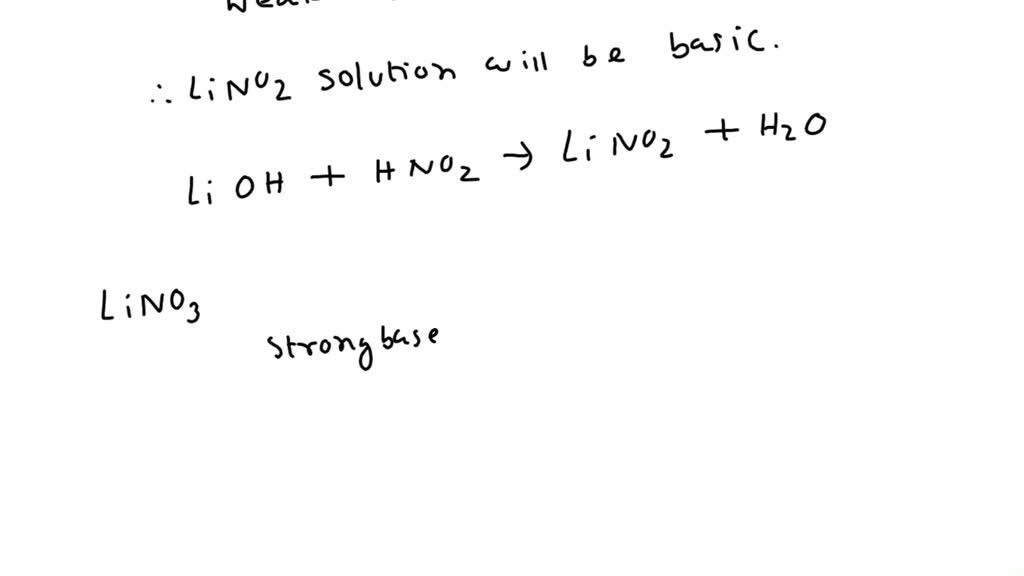 ∴ LiNO2 solution will be basic.
LiOH + HNO2 → LiNO2 + H2O
LiNO3
strong base